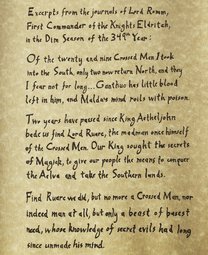 Excerpts from the journals of Lord Romm,
First Commander of the Knights Eldritch,
in the Dim Season of the 349th Year:
Of the twenty and nine Crossed Men I took
into the South, only two now return North, and they
I fear not for long... Ganthus has little blood
left in him, and Maldus' mind roils with poison.
Two years have passed since King Aetheljohn
bade us find Lord Ruarc, the madman once himself
of the Crossed Men. Our King sought the secrets
of Magick, to give our people the means to conquer
the Aelva and take the Southern lands.
Find Ruarc we did, but no more a Crossed Man, nor
indeed man at all, but only a beast of basest
need, whose knowledge of secret evils had long
since unmade his mind.